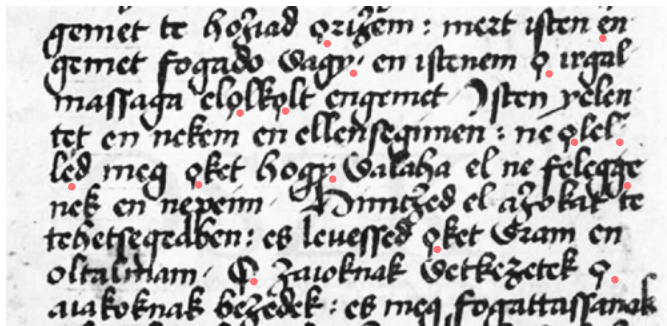 gemet te hoźiad ǫriźem : mert isten en
gemet fogado vagy · en istenem ǫ irgal
massaga elǫlkǫlt engemet Isten yelen
tet en nekem en ellensegimen : ne ǫlel
led meg ǫket hogy valaha el ne felegge
nek en nepenn / Hintźed el aźokat te
tehetsegedben : es leuessed ǫket Vram en
oltalmam · Ǫ źaioknak vetkeźetek ǫ
aiakoknak beźedek : es meg fogattassanak